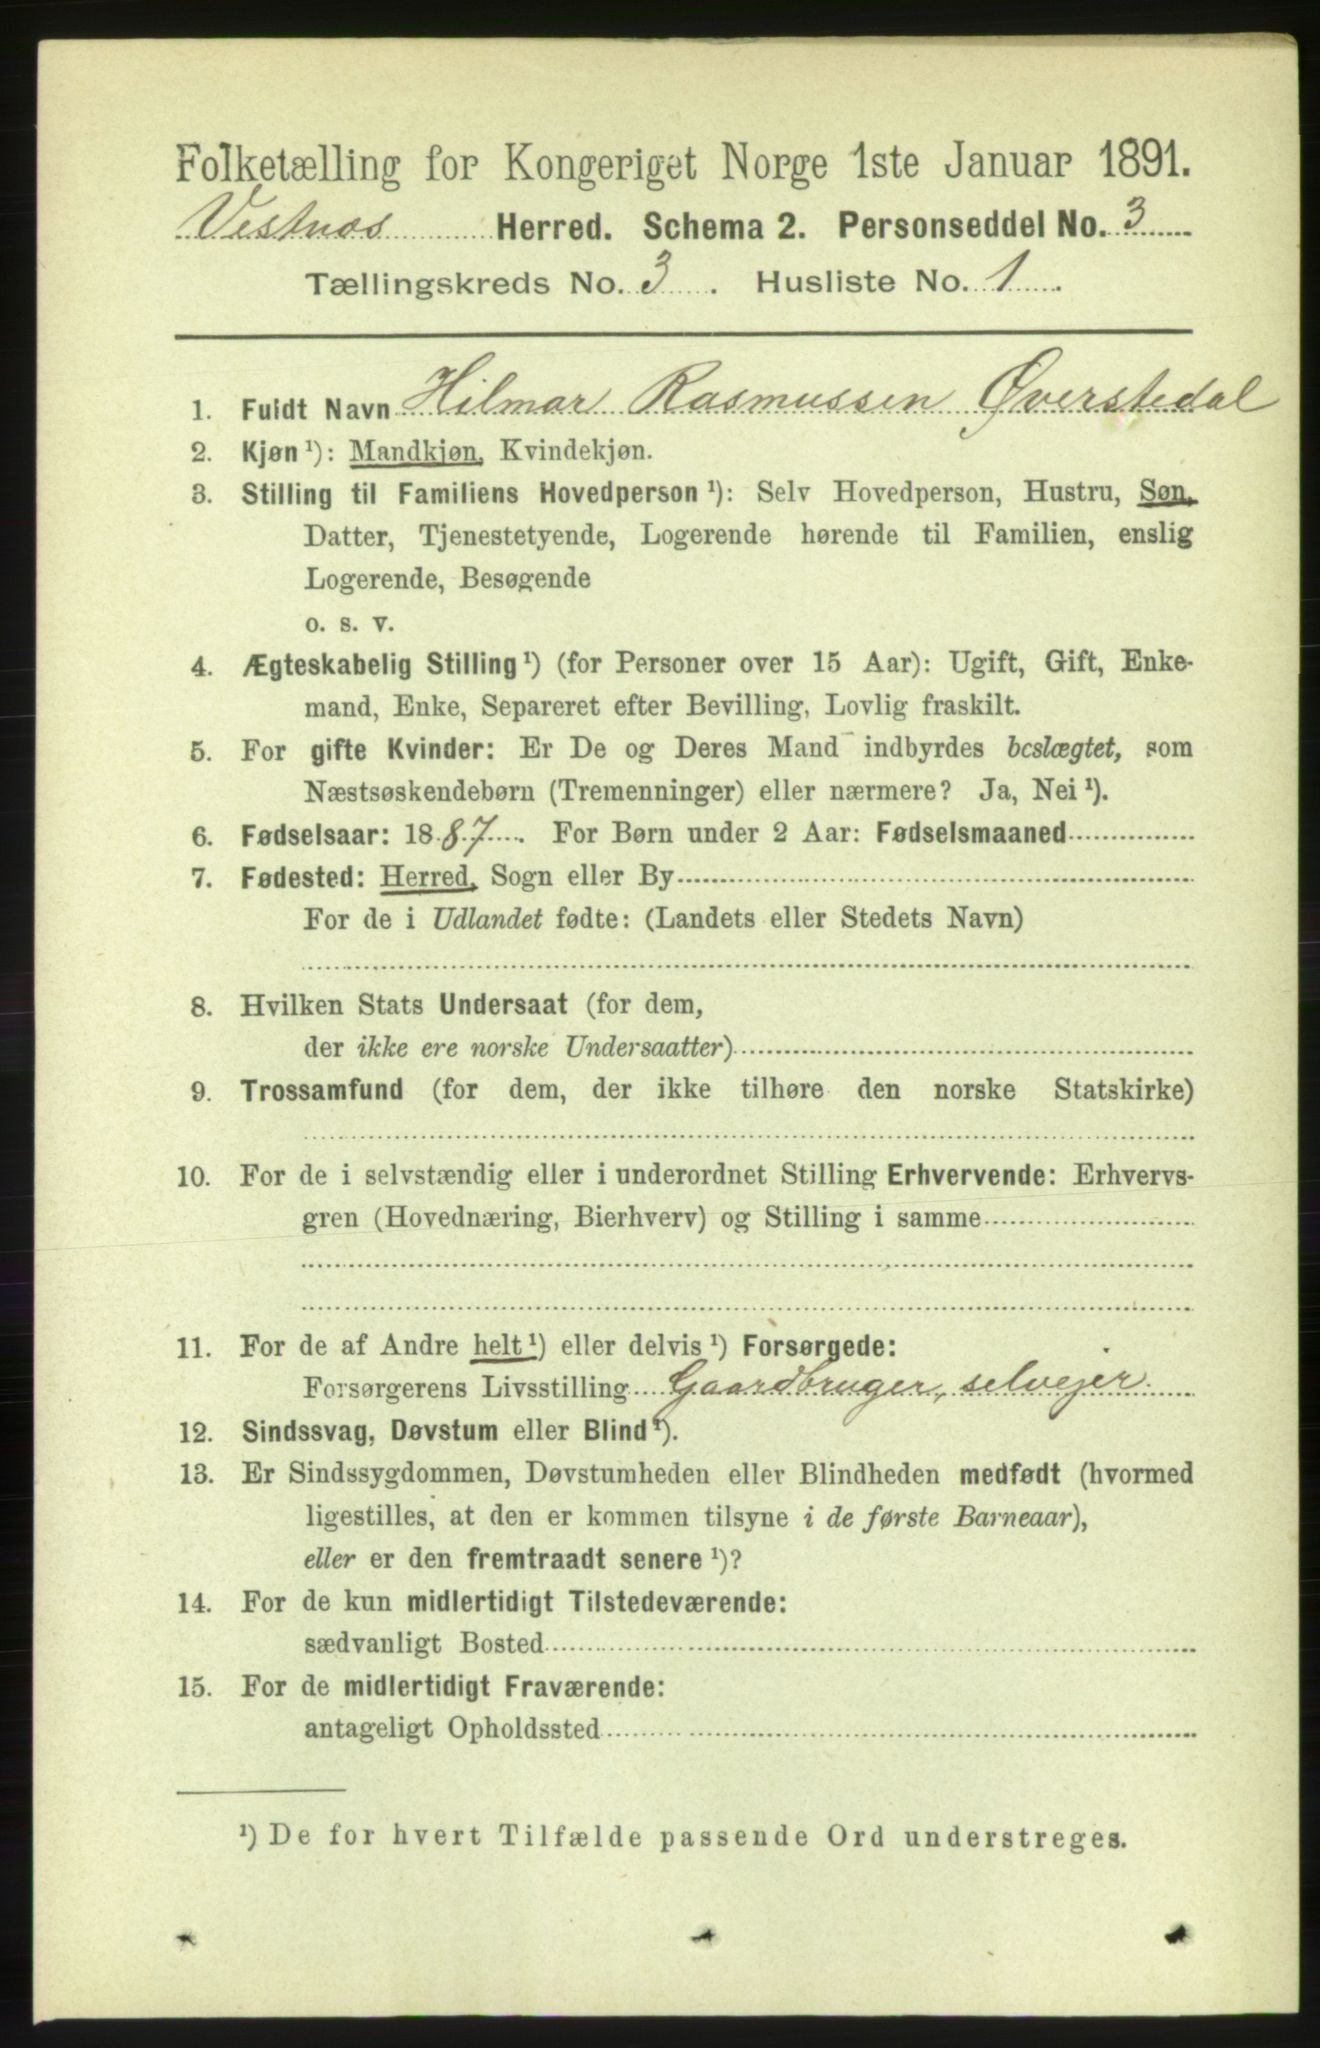 Folketælling for Kongeriget Norge 1ste Januar 1891.
Vestnæs Herred. Schema 2. Personseddel No. 3
Tællingskreds No. 3. Husliste No. 1.
1. Fuldt Navn Hilmar Rasmussen Øverstedal
2. Kjøn ¹): Mandkjøn, Kvindekjøn.
3. Stilling til Familiens Hovedperson ¹): Selv Hovedperson, Hustru, Søn,
Datter, Tjenestetyende, Logerende hørende til Familien, enslig
Logerende, Besøgende
o. s. v.
4. Ægteskabelig Stilling ¹) (for Personer over 15 Aar): Ugift, Gift, Enke-
mand, Enke, Separeret efter Bevilling, Lovlig fraskilt.
5. For gifte Kvinder: Er De og Deres Mand indbyrdes beslægtet, som
Næstsøskendebørn (Tremenninger) eller nærmere? Ja, Nei ¹).
6. Fødselsaar: 1887. For Børn under 2 Aar: Fødselsmaaned
7. Fødested: Herred, Sogn eller By
For de i Udlandet fødte: (Landets eller Stedets Navn)
8. Hvilken Stats Undersaat (for dem,
der ikke ere norske Undersaatter)
9. Trossamfund (for dem, der ikke tilhøre den norske Statskirke)
10. For de i selvstændig eller i underordnet Stilling Erhvervende: Erhvervs-
gren (Hovednæring, Bierhverv) og Stilling i samme
11. For de af Andre helt ¹) eller delvis ¹) Forsørgede:
Forsørgerens Livsstilling Gaardbruger, selvejer.
12. Sindssvag, Døvstum eller Blind ¹).
13. Er Sindssygdommen, Døvstumheden eller Blindheden medfødt (hvormed
ligestilles, at den er kommen tilsyne i de første Barneaar),
eller er den fremtraadt senere ¹)?
14. For de kun midlertidigt Tilstedeværende:
sædvanligt Bosted
15. For de midlertidigt Fraværende:
antageligt Opholdssted
¹) De for hvert Tilfælde passende Ord understreges.